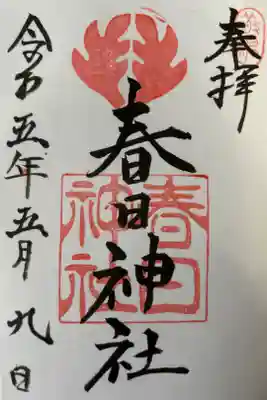 奉拝
春日神社
春日
神社
令和五年五月九日